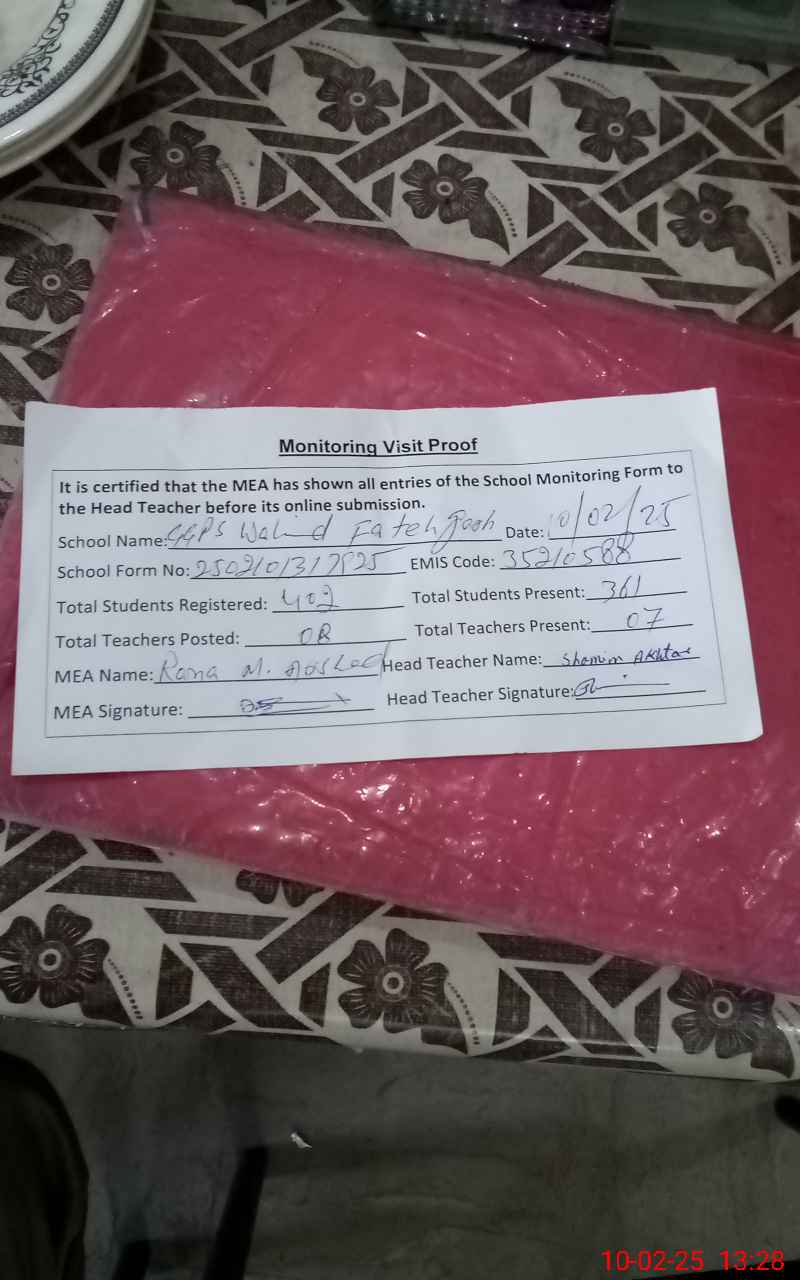 Monitoring Visit Proof
It is certified that the MEA has shown all entries of the School Monitoring Form to
the Head Teacher before its online submission.
School Name: GGPS Wahind Fatehgarh Date: 10/02/25
School Form No: EMIS Code: 35210588
Total Students Registered: 402 Total Students Present: 361
Total Teachers Posted: 08 Total Teachers Present: 07
MEA Name: Rana M. Head Teacher Name: Shamim Akhtar
MEA Signature: Head Teacher Signature:
10-02-25 13:28